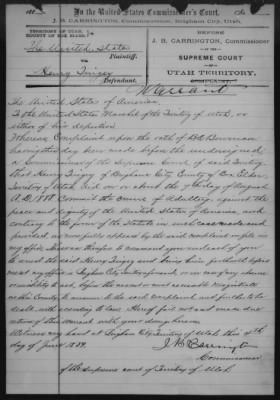 In the United States Commissioner's Court.
J. B. CARRINGTON, Commissioner, Brigham City, Utah.
TERRITORY OF UTAH,
COUNTY OF BOX ELDER.
The United States
Plaintiff,
vs.
Henry Tingey
Defendant.
BEFORE
J. B. CARRINGTON, Commissioner
OF THE
SUPREME COURT
OF
UTAH TERRITORY.
Warrant
The United States of America,
To the United States Marshal of the Territory of Utah, or
either of his deputies
Whereas Complaint upon the oath of Bowman
having this day been made before the undersigned
a Commissioner of the Supreme Court of said Territory
that Henry Tingey of Brigham City County of Box Elder
Territory of Utah, did on or about the 7th day of August
A.D. 1888. Commit the crime of Adultery against the
peace and dignity of the United States of America, and
contrary to the form of the Statute in such case made and
provided as more fully appears by the said complaint on file in
my office. Now are therefore to command you and each of you
to arrest the said Henry Tingey and bring him forthwith before
me at my office in Brigham City in the aforesaid, or in case of my absence
or inability to act, before the nearest or most accessible magistrate
in this County, to answer to the said complaint and further to be
dealt with according to law. Hereof fail not and make due
return of this warrant with your doings thereon.
Witness my hand at Brigham City, Territory of Utah this 4th
day of June 1889.
J. B. Carrington
Commissioner
of the Supreme Court of Territory of Utah